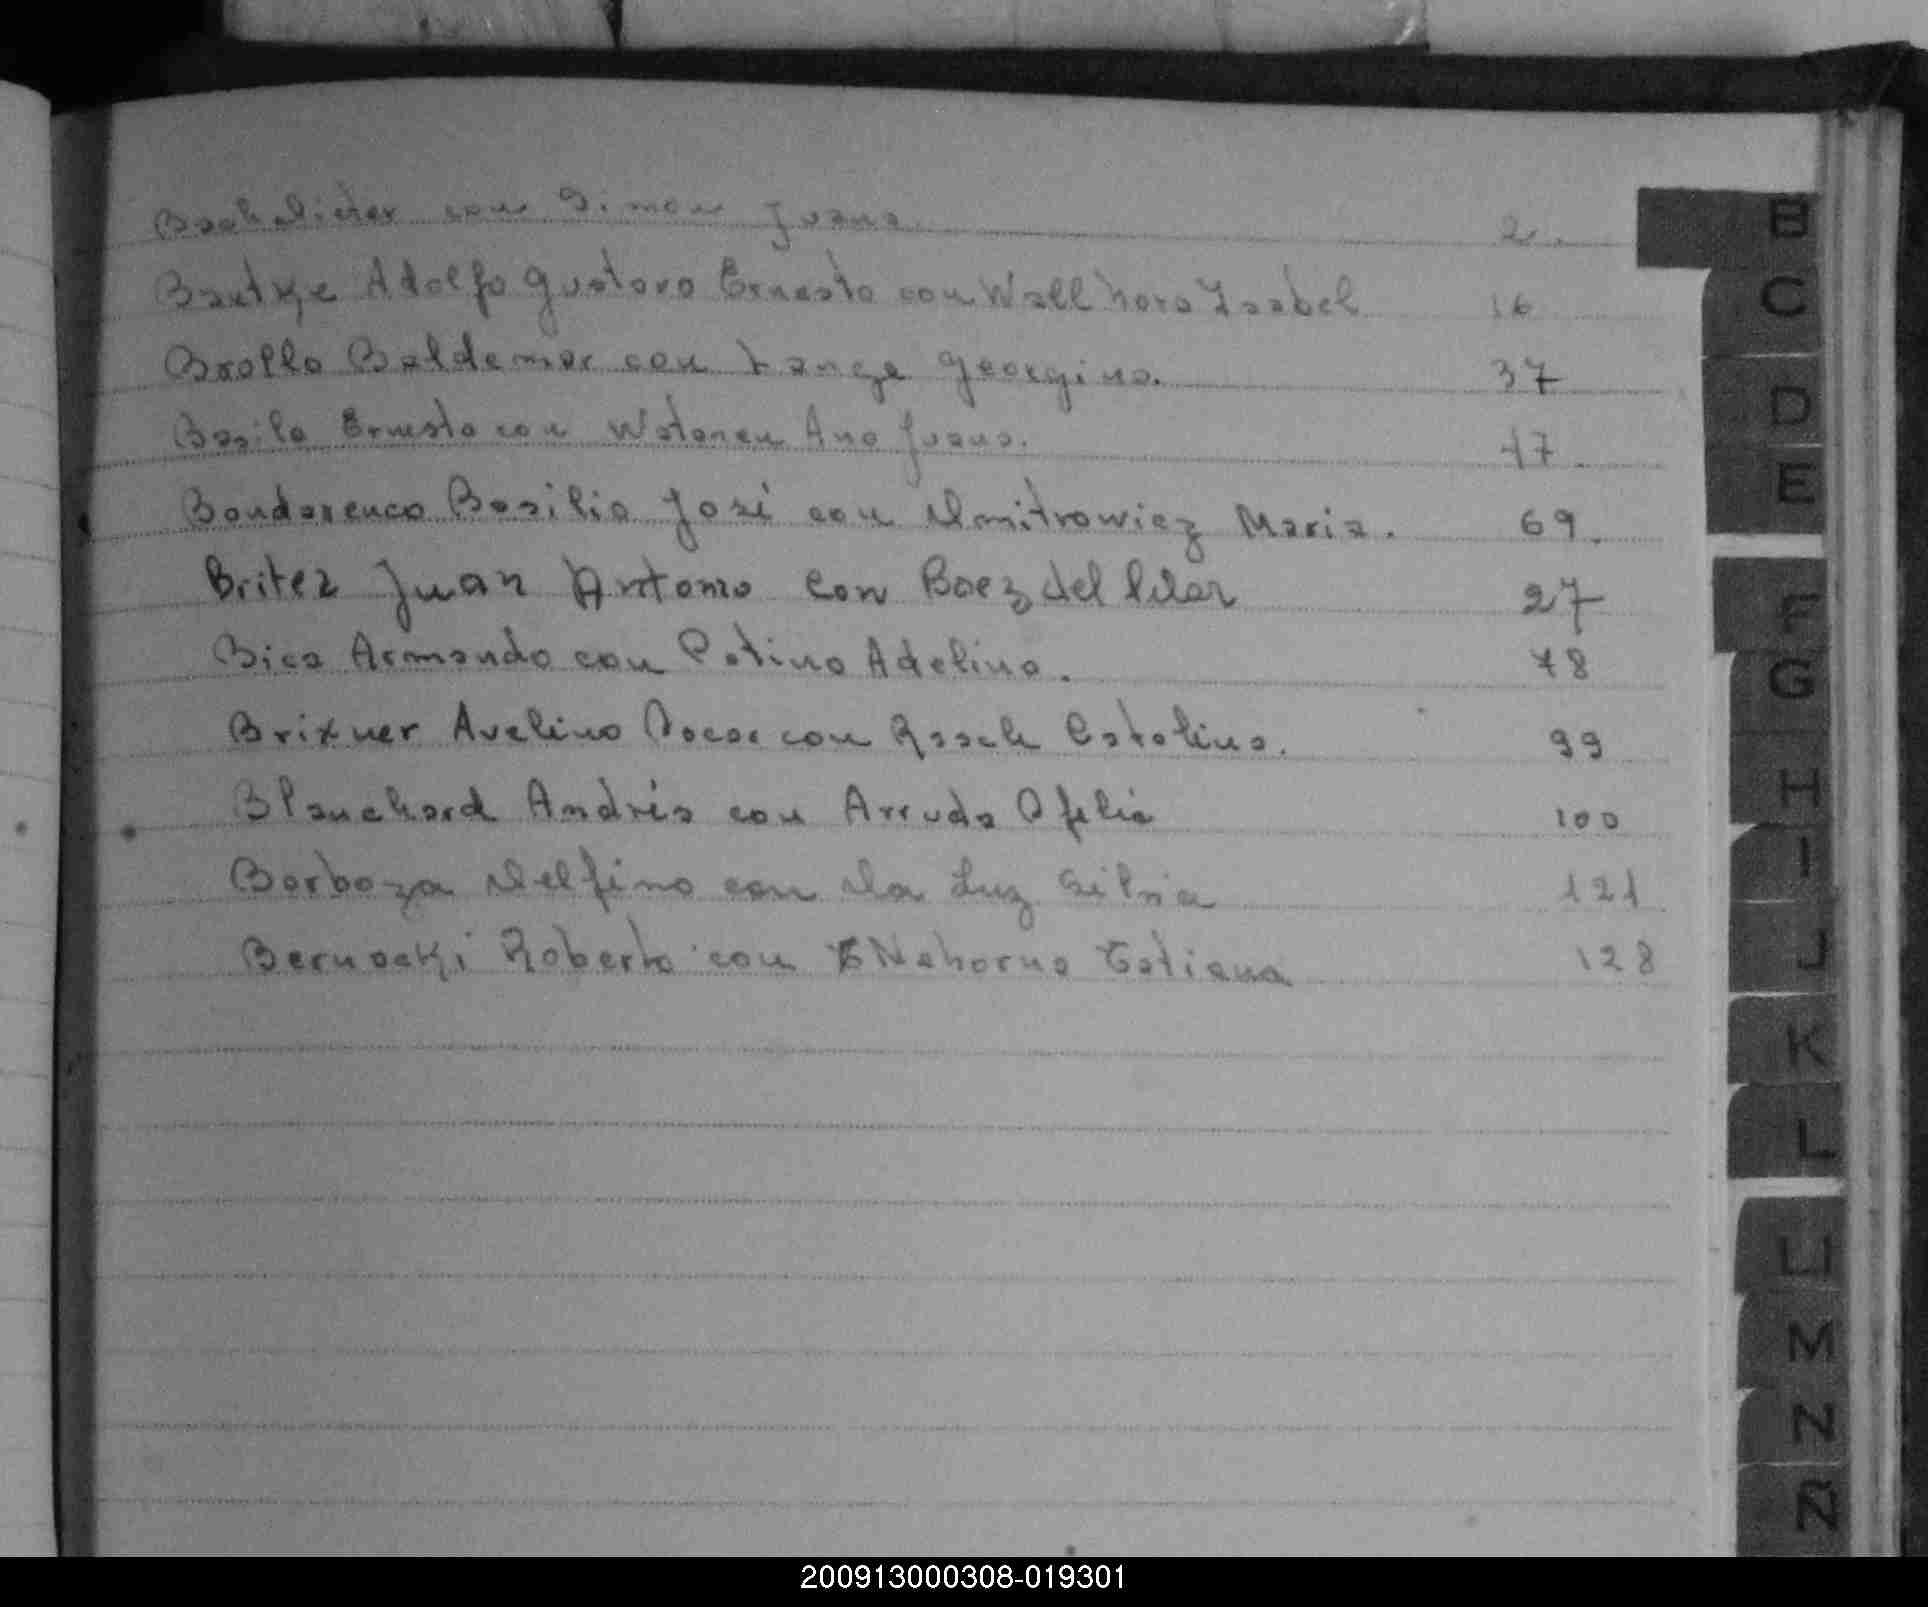 con Simon Juana 2.
Adolfo Gustavo Ernesto con Isabel 16
Brollo Baldemar con Lange Georgina. 37
Ernesto con Ana Juana. 47
Bondarenco Basilio José con Dmitrowicz Maria. 69.
Britez Juan Antonio con Baez del Pilar 27
Bica Armando con Patino Adelina. 78
Brixner Avelino Oscar con Rasch Catalina. 99
Blanchard Andrés con Arruda Ofelia 100
Barboza Delfino con Da Luz Silvia 121
Bernacki Roberto con Tatiana 128
B
C
D
E
F
G
H
I
J
K
L
LL
M
N
Ñ
200913000308-019301